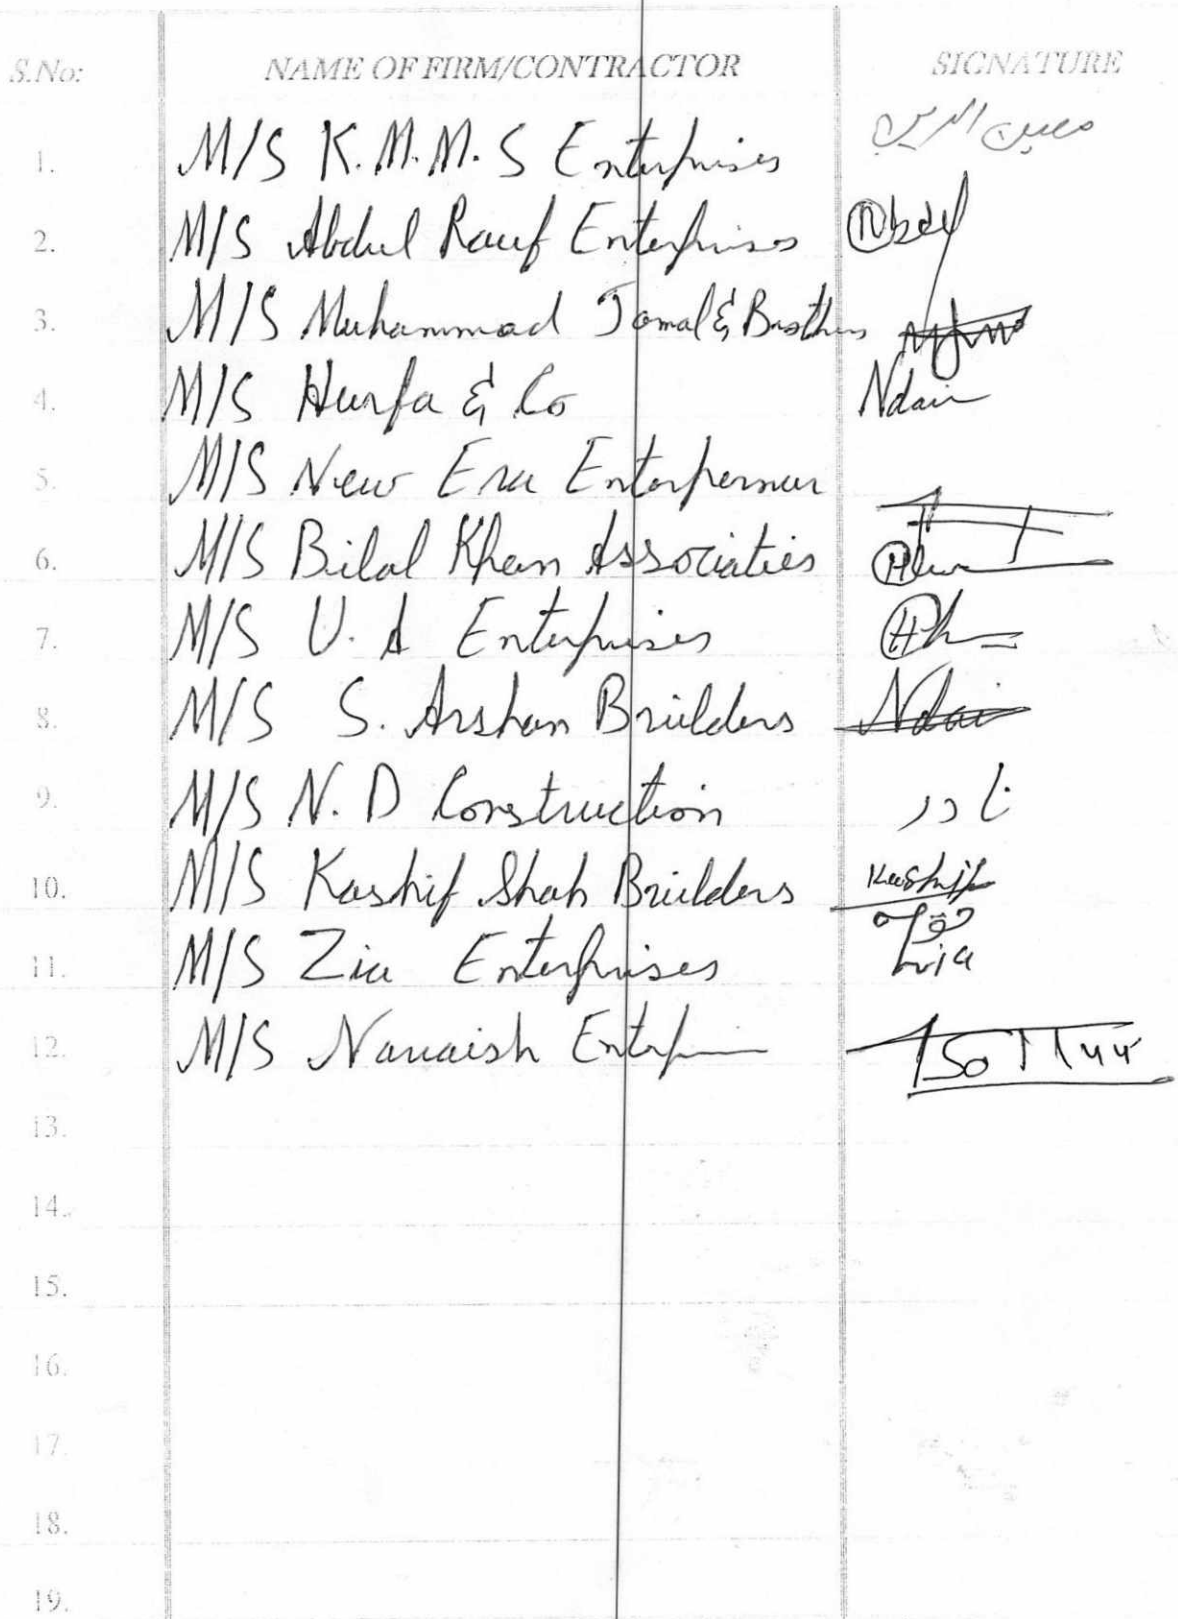 S.No: NAME OF FIRM/CONTRACTOR SIGNATURE
1. M/S K.M.M.S Enterprises
2. M/S Abdul Rauf Enterprises
3. M/S Muhammad Jamal & Brothers
4. M/S Hunfa & Co Ndai
5. M/S New Era
6. M/S Bilal Khan Associaties
7. M/S U.A Enterprises
8. M/S S. Arshan Builders Ndai
9. M/S N.D Construction نادر
10. M/S Kashif Shah Builders Kashif
11. M/S Zia Enterprises Zia
12. M/S
13.
14.
15.
16.
17.
18.
19.